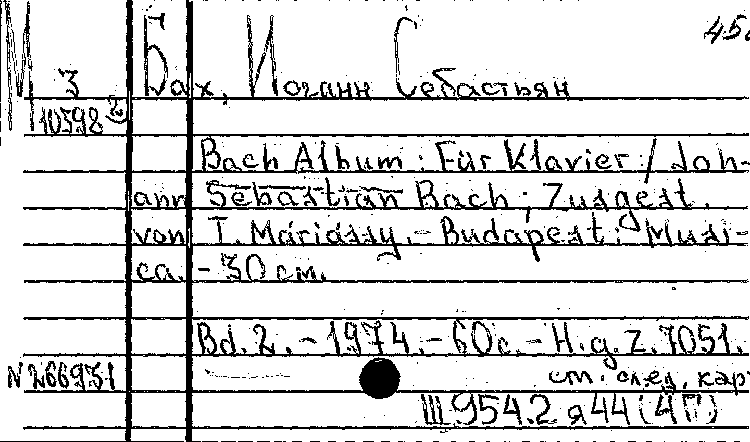 М 3 Бах, Иоганн Себастьян
10598
Bach Album : Für Klavier / Joh-
ann Sebastian Bach ; Zusgest.
von T. Máriássy. - Budapest : Musi-
ca. - 30 см.
Bd. 2. - 1974. - 60 с. - H. g. Z. 7051.
N 266931 см. след. кар
III.954.2 я44 (4Г)